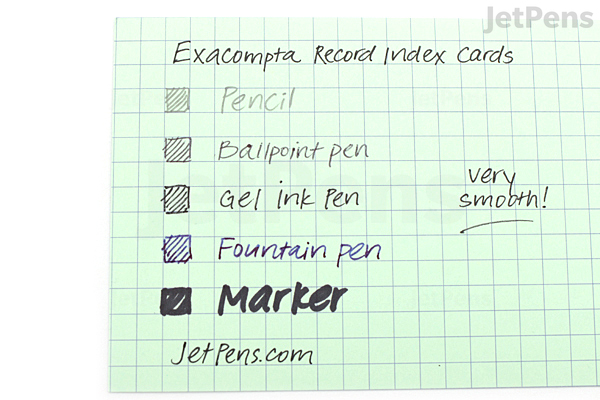 JetPens
Exacompta Record Index Cards
Pencil
Ballpoint pen
Gel ink Pen
very
smooth!
Fountain pen
Marker
JetPens.com
JetPens